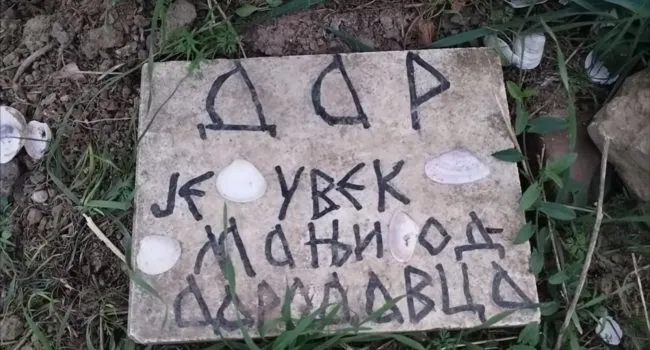 ДАР
ЈЕ УВЕК
МАЊИ ОД
ДАРОДАВЦА